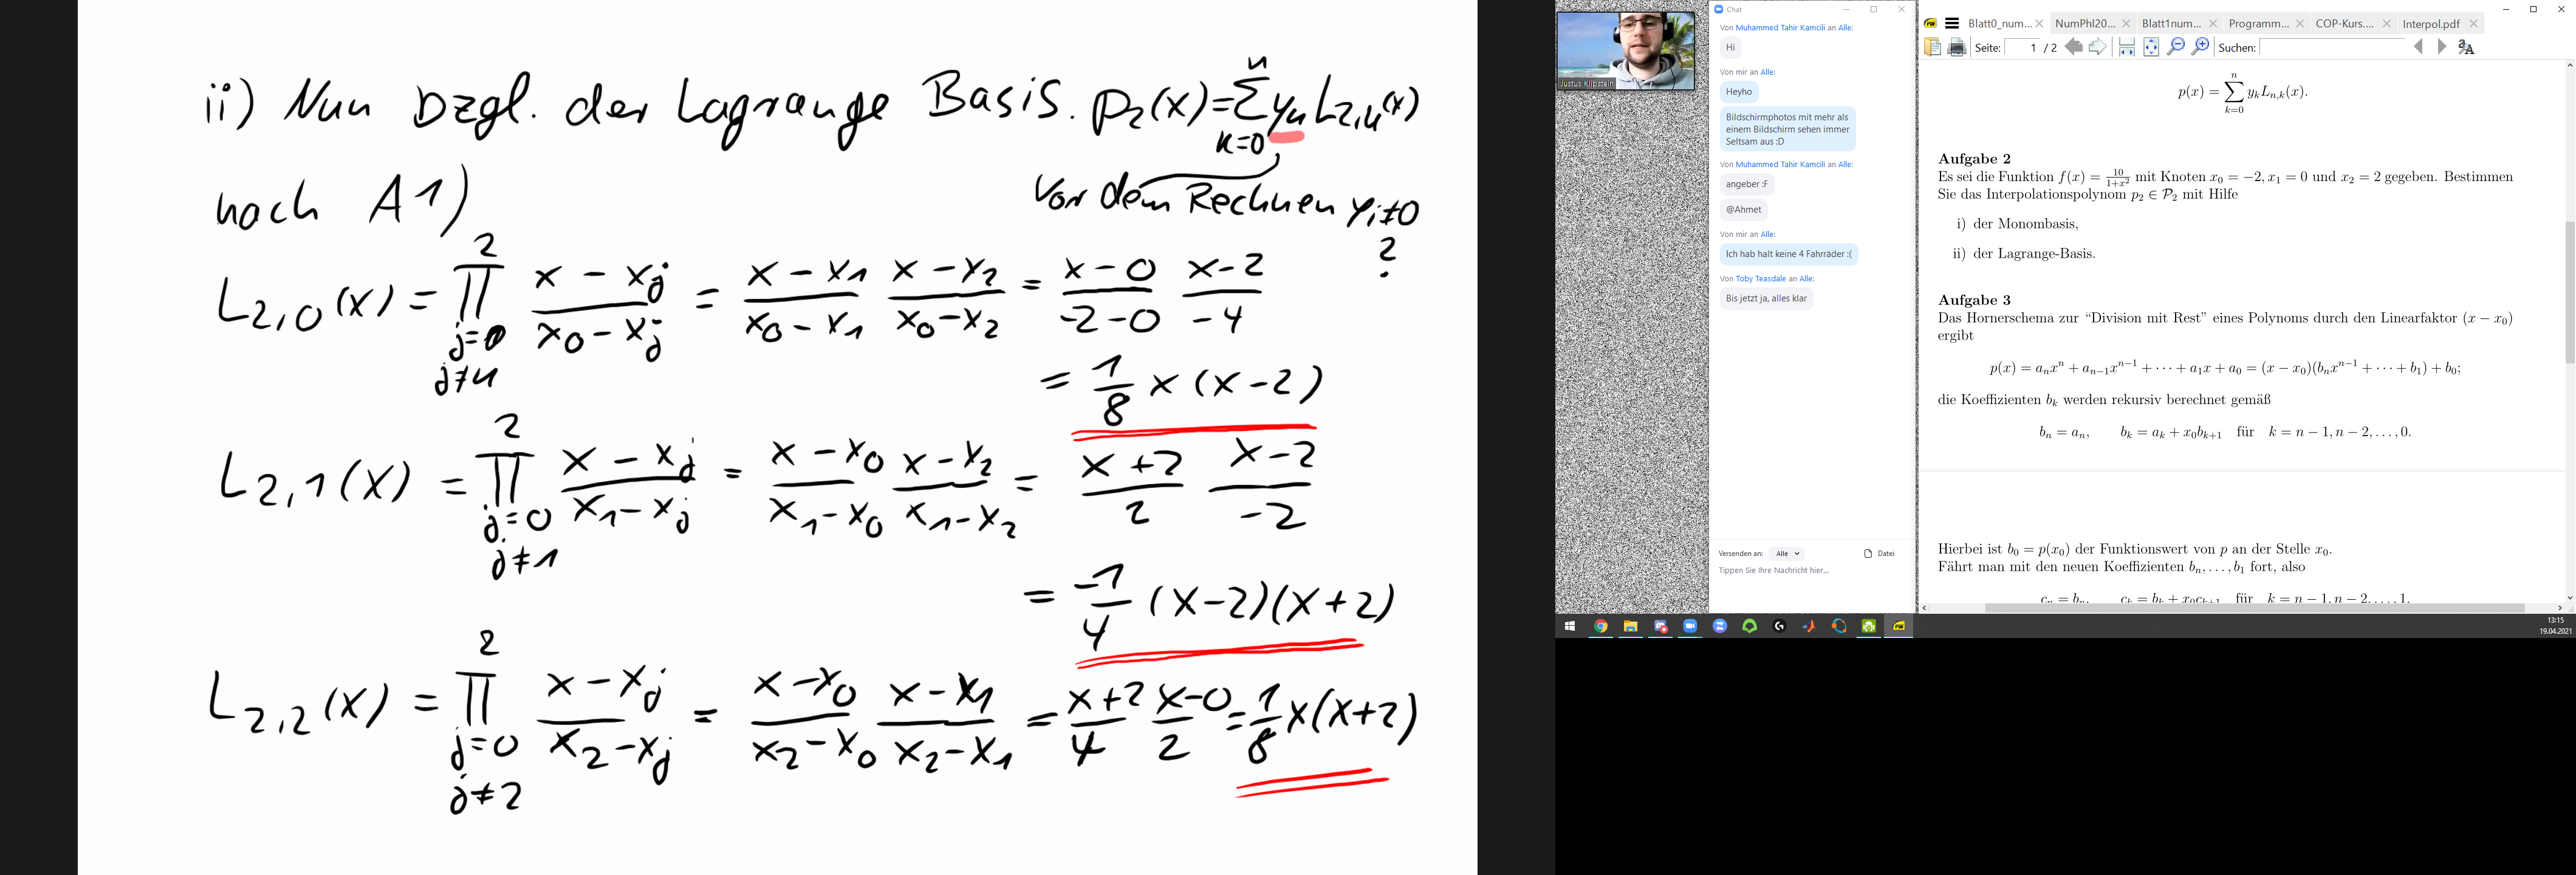 ii) Nun bzgl. der Lagrange Basis. p₂(x) = ∑_{k=0}^{n} y_k L_{2,k}(x)
nach A1)
Vor dem Rechnen y_i ≠ 0
?
L_{2,0}(x) = ∏_{j=0, j≠k}^{2} (x - x_j)/(x_0 - x_j) = (x - x_1)/(x_0 - x_1) (x - x_2)/(x_0 - x_2) = (x-0)/(-2-0) (x-2)/(-4)
= 1/8 x (x-2)
L_{2,1}(x) = ∏_{j=0, j≠1}^{2} (x - x_j)/(x_1 - x_j) = (x - x_0)/(x_1 - x_0) (x - x_2)/(x_1 - x_2) = (x+2)/2 (x-2)/(-2)
= -1/4 (x-2)(x+2)
L_{2,2}(x) = ∏_{j=0, j≠2}^{2} (x - x_j)/(x_2 - x_j) = (x - x_0)/(x_2 - x_0) (x - x_1)/(x_2 - x_1) = (x+2)/4 (x-0)/2 = 1/8 x(x+2)
Justus Klipstein
Chat
Von Muhammed Tahir Kamcili an Alle:
Hi
Von mir an Alle:
Heyho
Bildschirmphotos mit mehr als
einem Bildschirm sehen immer
Seltsam aus :D
Von Muhammed Tahir Kamcili an Alle:
angeber :F
@Ahmet
Von mir an Alle:
Ich hab halt keine 4 Fahrräder :(
Von Toby Teasdale an Alle:
Bis jetzt ja, alles klar
Versenden an: Alle Datei
Tippen Sie Ihre Nachricht hier...
Blatt0_num... NumPhI20... Blatt1num... Programm... COP-Kurs.... Interpol.pdf
Seite: 1 / 2 Suchen:
p(x) = ∑_{k=0}^{n} y_k L_{n,k}(x).
Aufgabe 2
Es sei die Funktion f(x) = 10/(1+x²) mit Knoten x₀ = −2, x₁ = 0 und x₂ = 2 gegeben. Bestimmen
Sie das Interpolationspolynom p₂ ∈ 𝒫₂ mit Hilfe
i) der Monombasis,
ii) der Lagrange-Basis.
Aufgabe 3
Das Hornerschema zur “Division mit Rest” eines Polynoms durch den Linearfaktor (x − x₀)
ergibt
p(x) = a_n x^n + a_{n−1} x^{n−1} + ⋯ + a₁x + a₀ = (x − x₀)(b_n x^{n−1} + ⋯ + b₁) + b₀;
die Koeffizienten b_k werden rekursiv berechnet gemäß
b_n = a_n, b_k = a_k + x₀b_{k+1} für k = n − 1, n − 2, . . . , 0.
Hierbei ist b₀ = p(x₀) der Funktionswert von p an der Stelle x₀.
Fährt man mit den neuen Koeffizienten b_n, . . . , b₁ fort, also
c_n = b_n, c_k = b_k + x₀c_{k+1} für k = n − 1, n − 2, . . . , 1.
13:15
19.04.2021